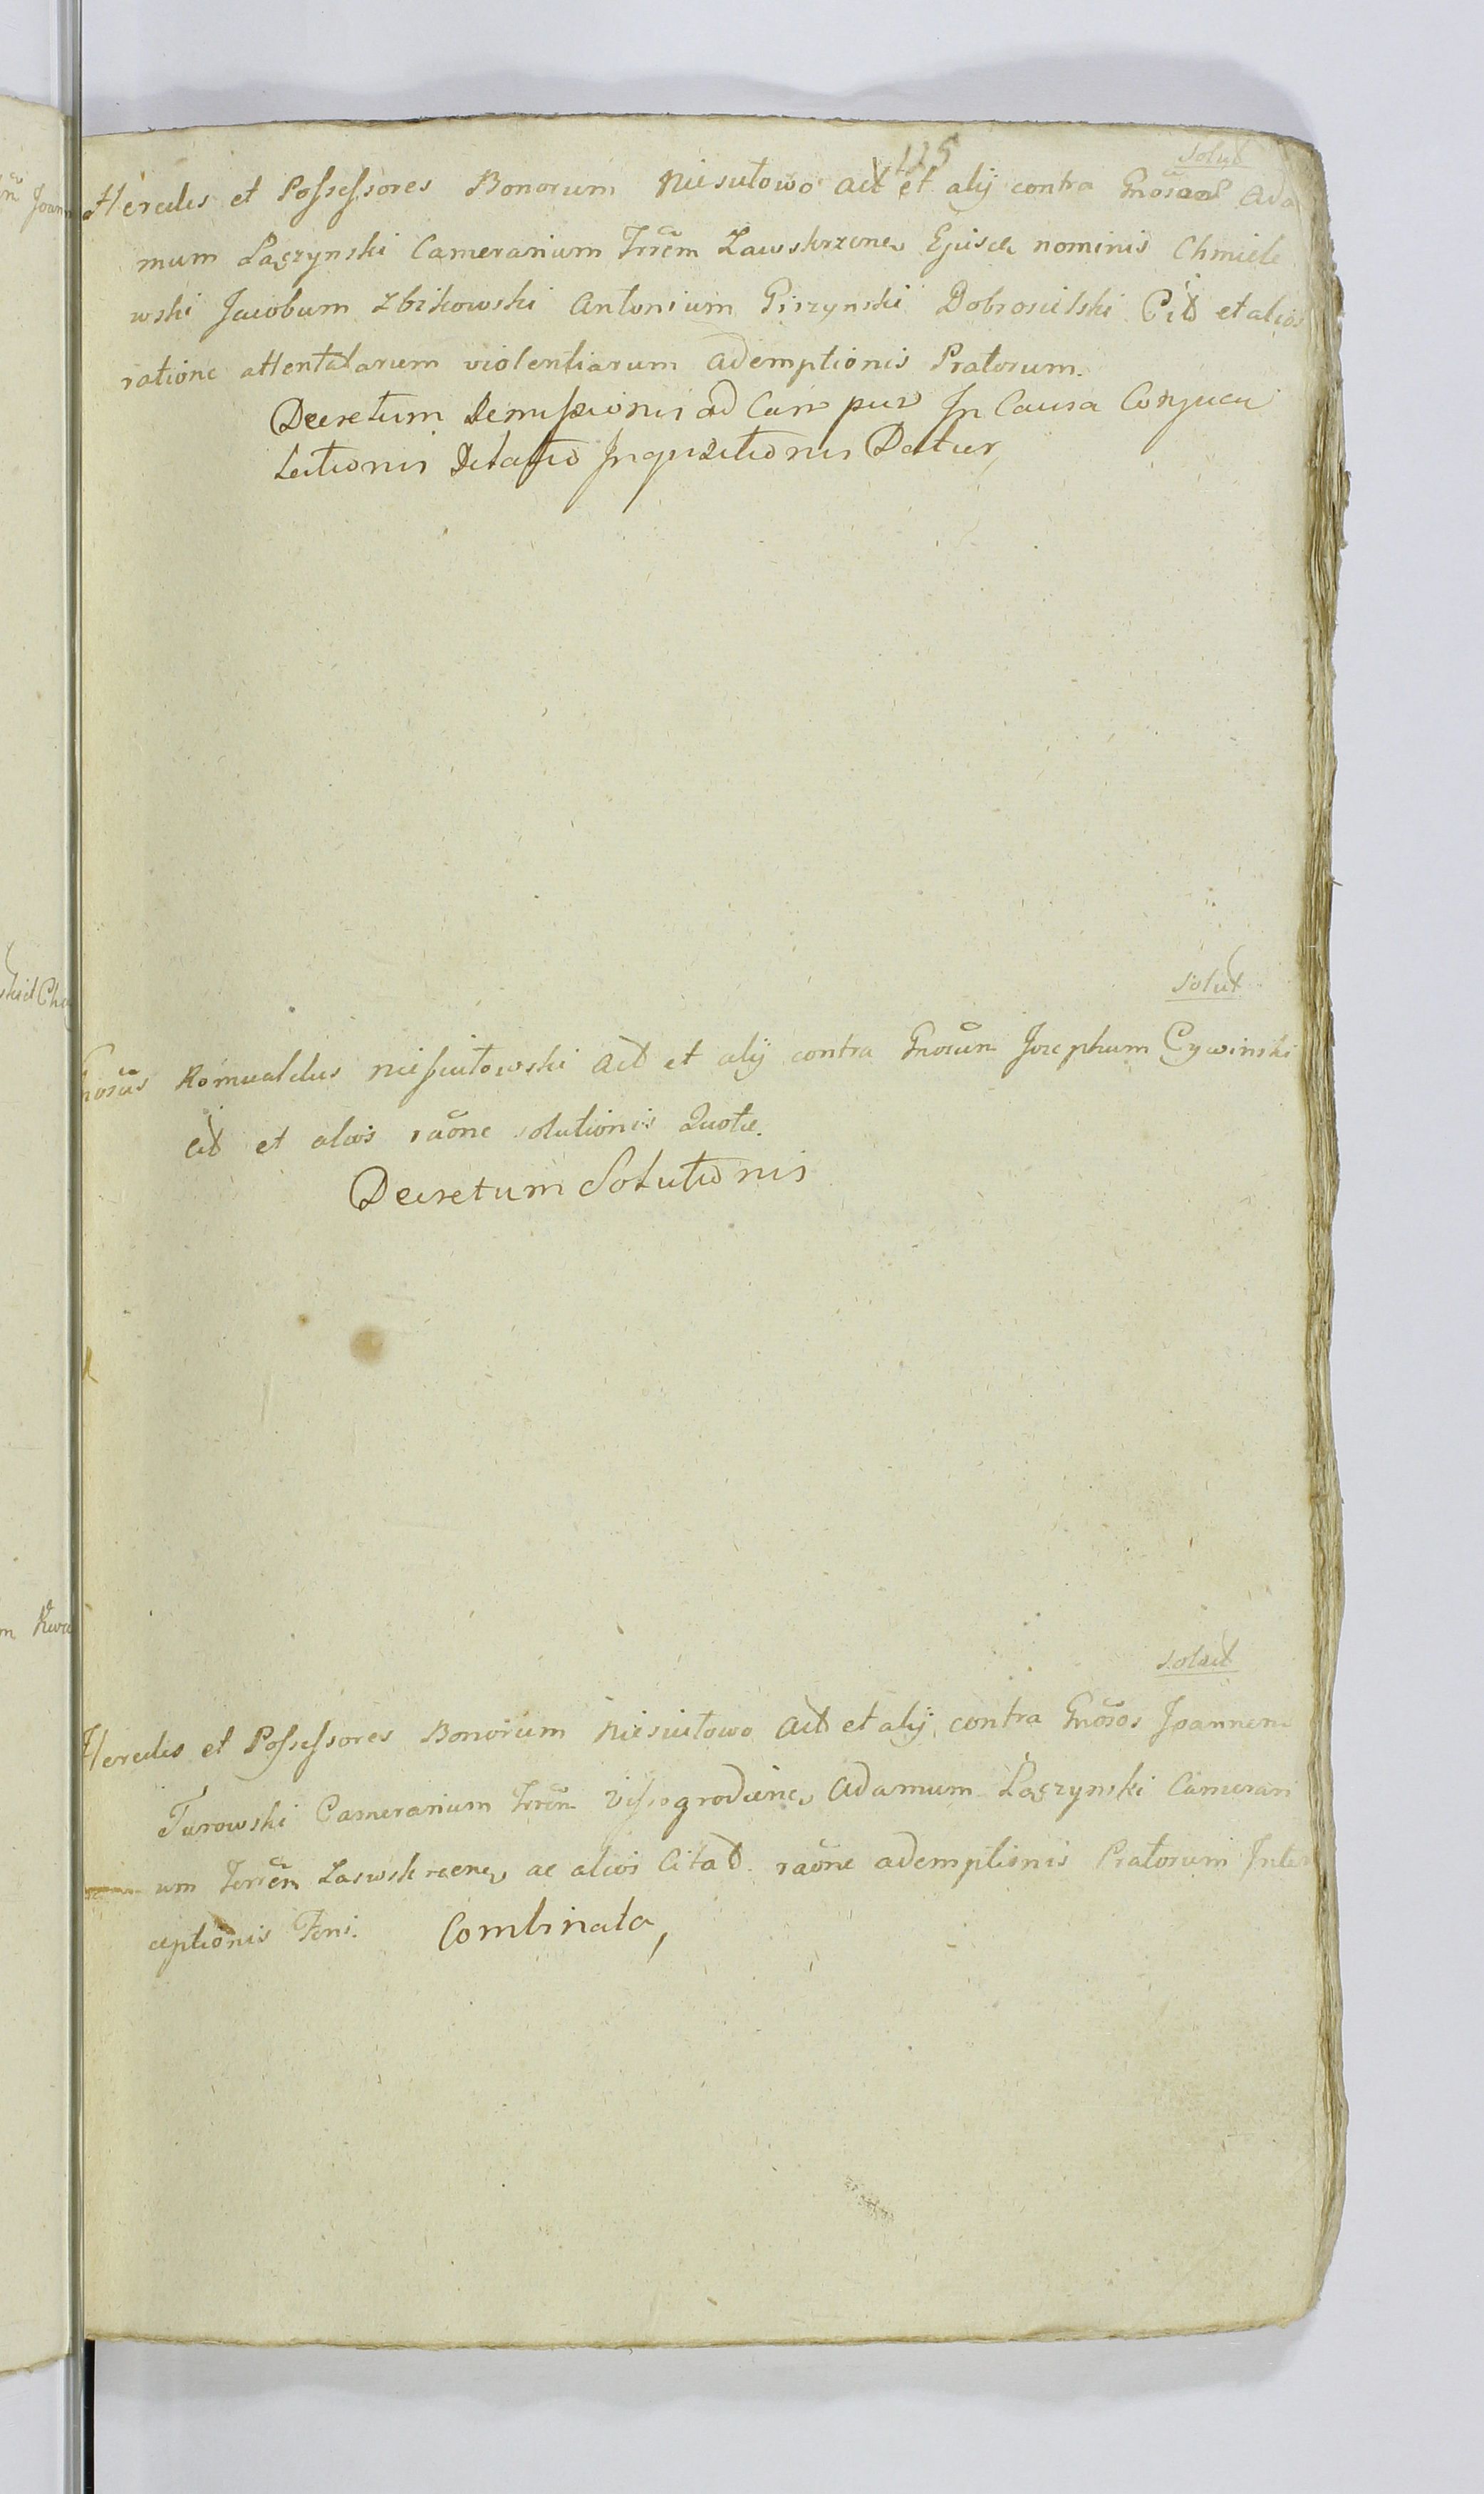 125
solut
Heredes et Possessores Bonorum Niesułowo act et alij contra Gnosos Ada
mum Łączynski Camerarium Trrem Zawskrzenes Ejusd nominis Chmiele
wski Jacobum Zbikowski Antonium Pierzynski Dobrosielski Cit et alios
ratione attentatarum violentiarum ademptionis Pratorum.
Decretum Demissionis ad Campum In Causa Conjucu
lationis Dilatio Inquisitionis Datur
solut
Gnosus Romualdus Niesciułowski act et alij contra Gnosum Josephum Cywinski
cit et alios raone solutionis Quotæ.
Decretum Solutionis
solut
Heredes et Possessores Bonorum Niesiułowo act et alij contra Gnosos Joannem
Turowski Camerarium trrem Vissogrodiens Adamum Łączynski Camerari
um Terrem Zawskrzenes ac alios Citat. raone ademptionis Pratorum Inter
ceptionis Feni. Combinata